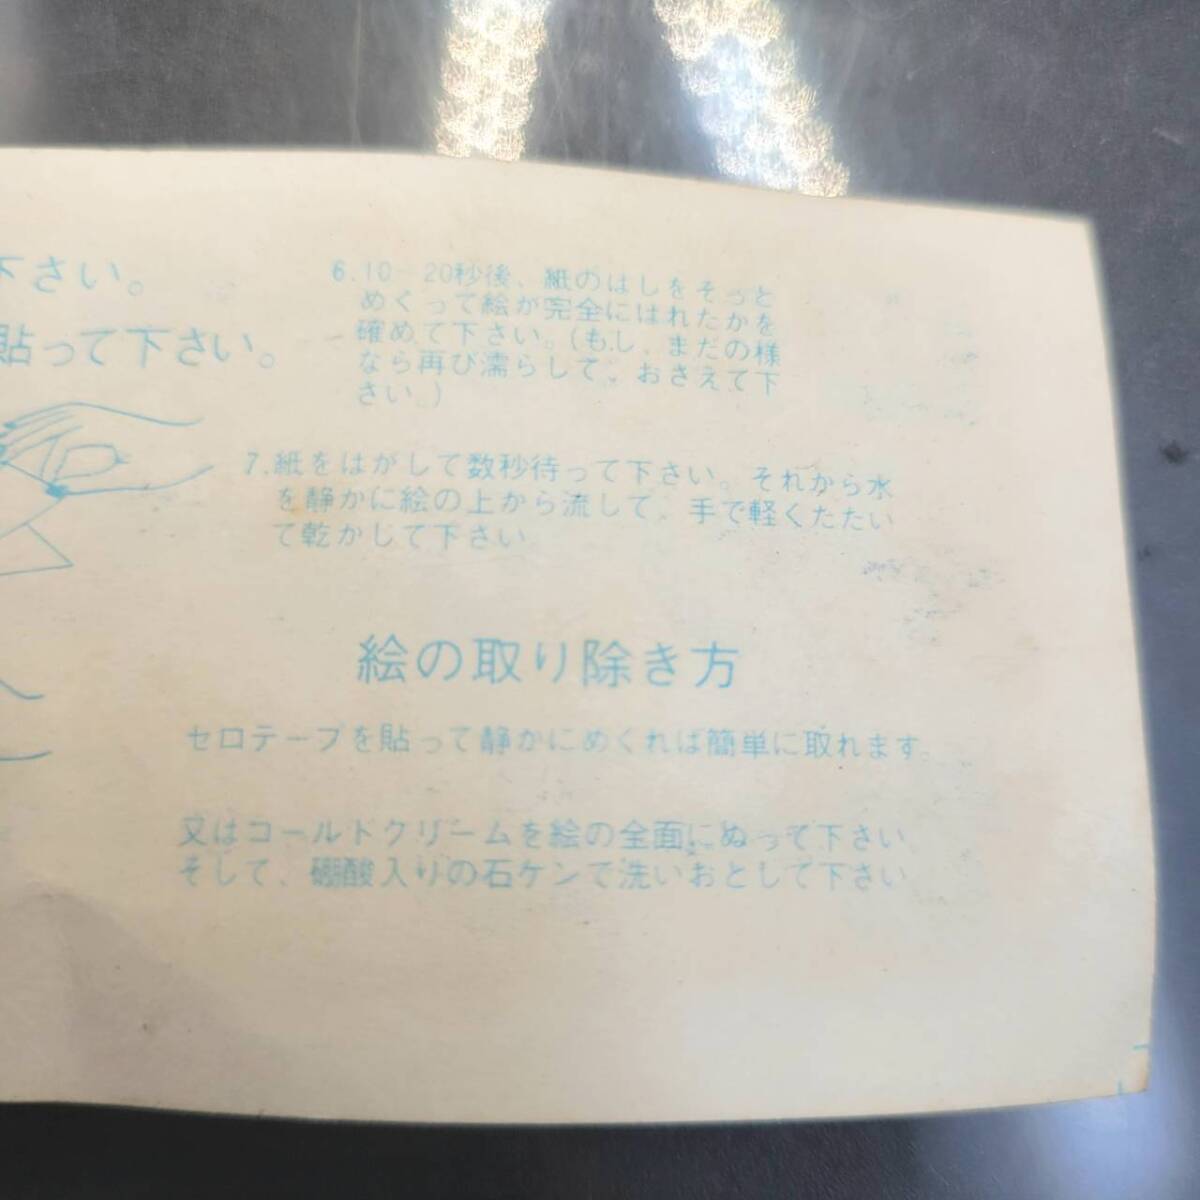 下さい。
貼って下さい。
6.10−20秒後、紙のはしをそっと
めくって絵が完全にはれたかを
確めて下さい。(もし、まだの様
なら再び濡らして、おさえて下
さい。)
7.紙をはがして数秒待って下さい。それから水
を静かに絵の上から流して、手で軽くたたい
て乾かして下さい
絵の取り除き方
セロテープを貼って静かにめくれば簡単に取れます。
又はコールドクリームを絵の全面にぬって下さい
そして、硼酸入りの石ケンで洗いおとして下さい